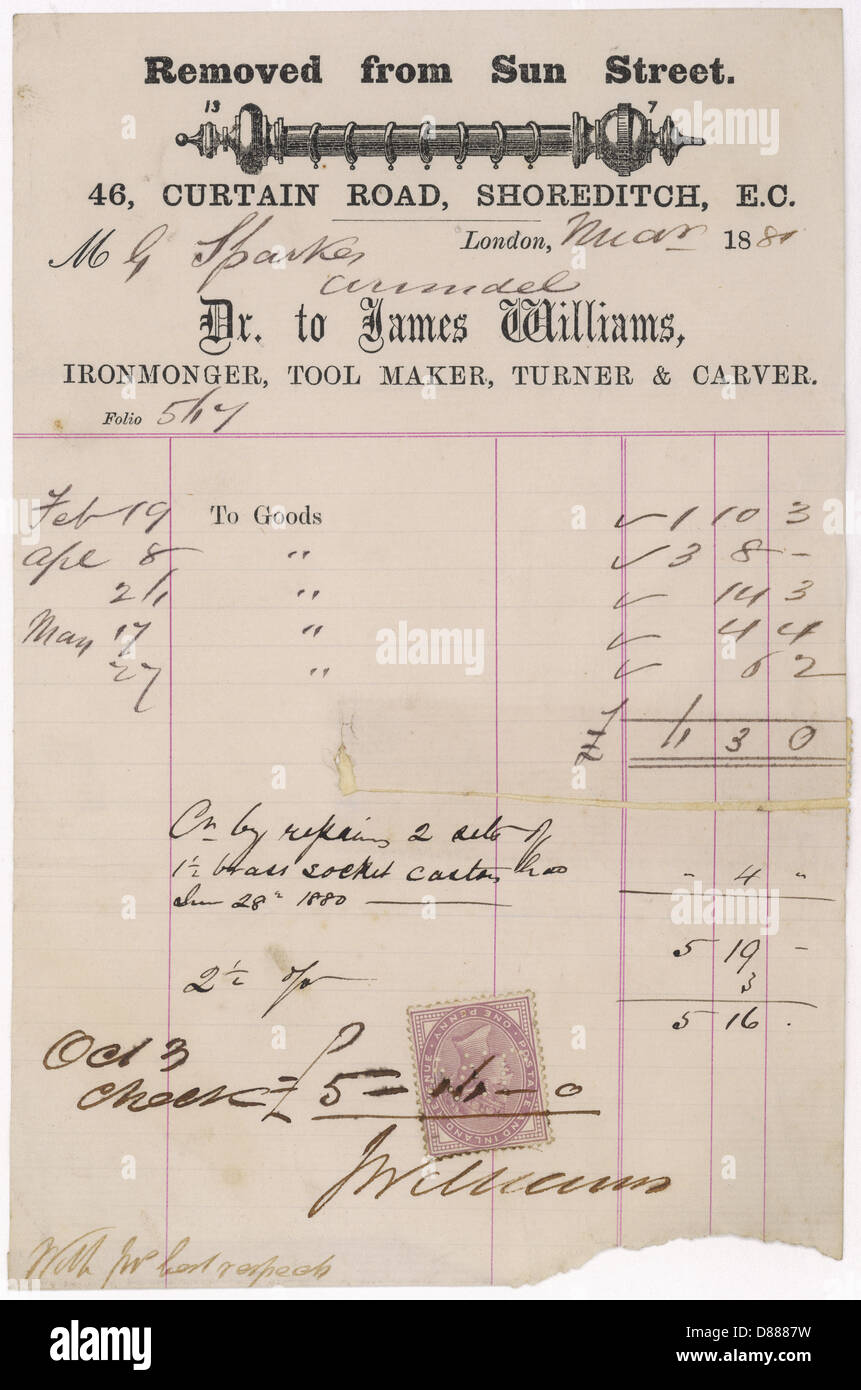 Removed from Sun Street.
13 7
46, CURTAIN ROAD, SHOREDITCH, E.C.
London, 188
M G Sparkes
Arundel
Dr. to James Williams,
IRONMONGER, TOOL MAKER, TURNER & CARVER.
Folio 517
Feb 19 To Goods ✓ 1 10 3
Apl 8 " ✓ 3 8 -
21 " ✓ 14 3
May 17 " ✓ 4 4
27 " ✓ 6 2
3 0
Cr by repairs 2 sets of
1½ brass socket castors " 4 "
28th 1880
5 19 -
2½ 3
5 16 .
Oct 3
Check = £5 = 0
POSTAGE AND INLAND REVENUE · ONE PENNY
JWilliams
With best respects
alamy
a
alamy stock photo
D8887W
www.alamy.com